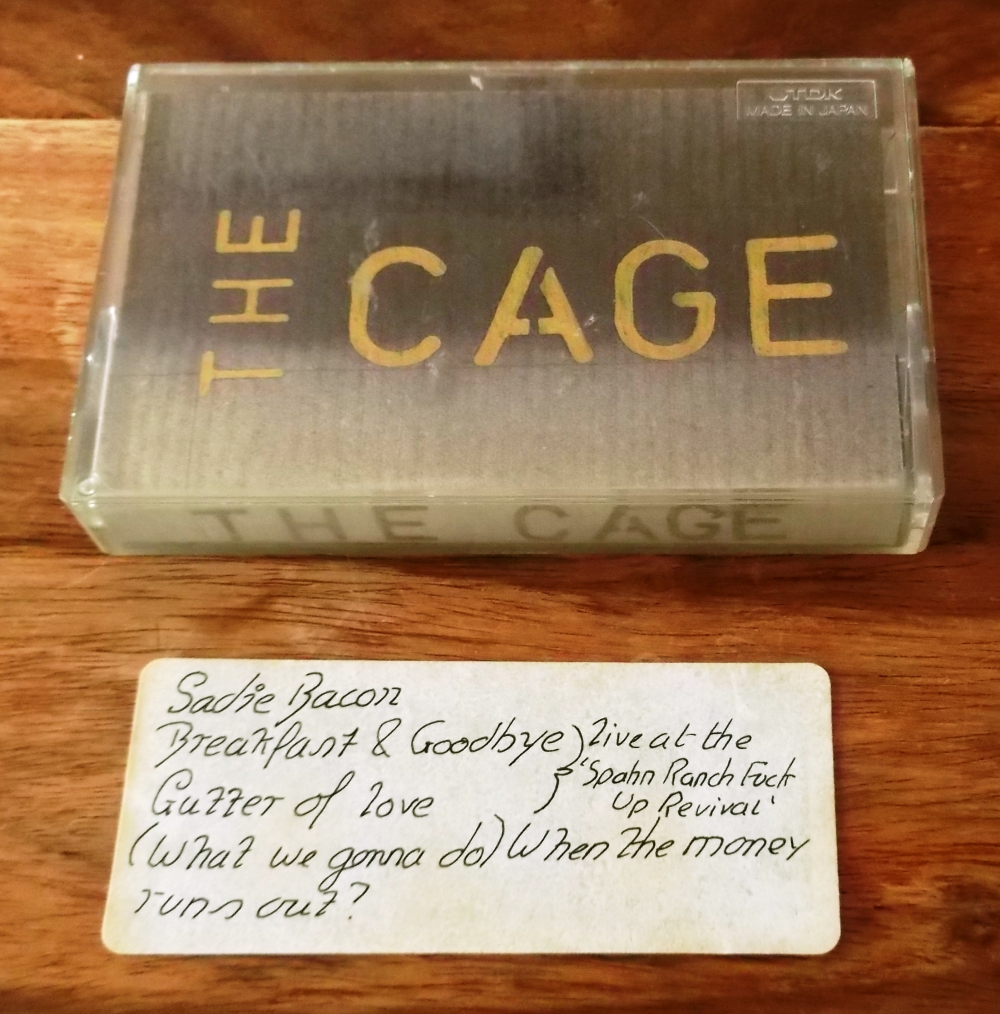 TDK
MADE IN JAPAN
THE CAGE
THE CAGE
Sadie Bacon
Breakfast & Goodbye } live at the
'Spahn Ranch Fuck
Gutter of love
Up Revival'
(What we gonna do) When the money
runs out?